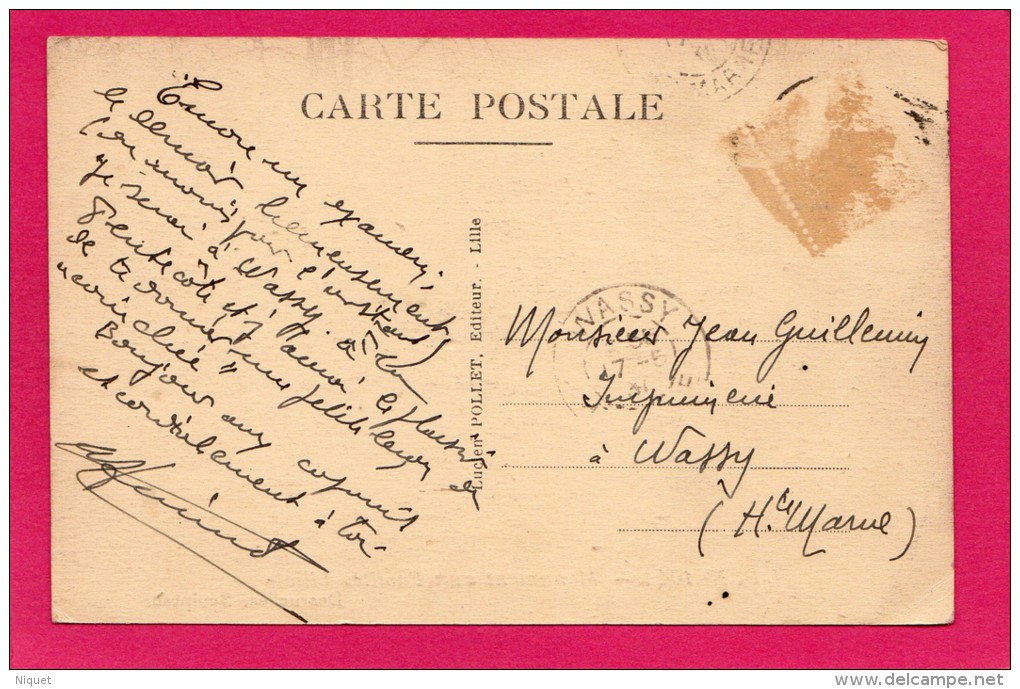 CARTE POSTALE
Encore un examen,
le dernier heureusement
(en amour pour l'instant)
je serai à Wassy à la
Pentecôte et j'aurai le plaisir
de te donner une petite leçon
"coinchée"
Bonjour aux copains
et cordialement à toi
Lucien POLLET, Editeur. - Lille
WASSY H
17 -5
31
MARNE
Monsieur Jean Guillemin
Imprimerie
à Wassy
(Hte Marne)
Niquet
www.delcampe.net